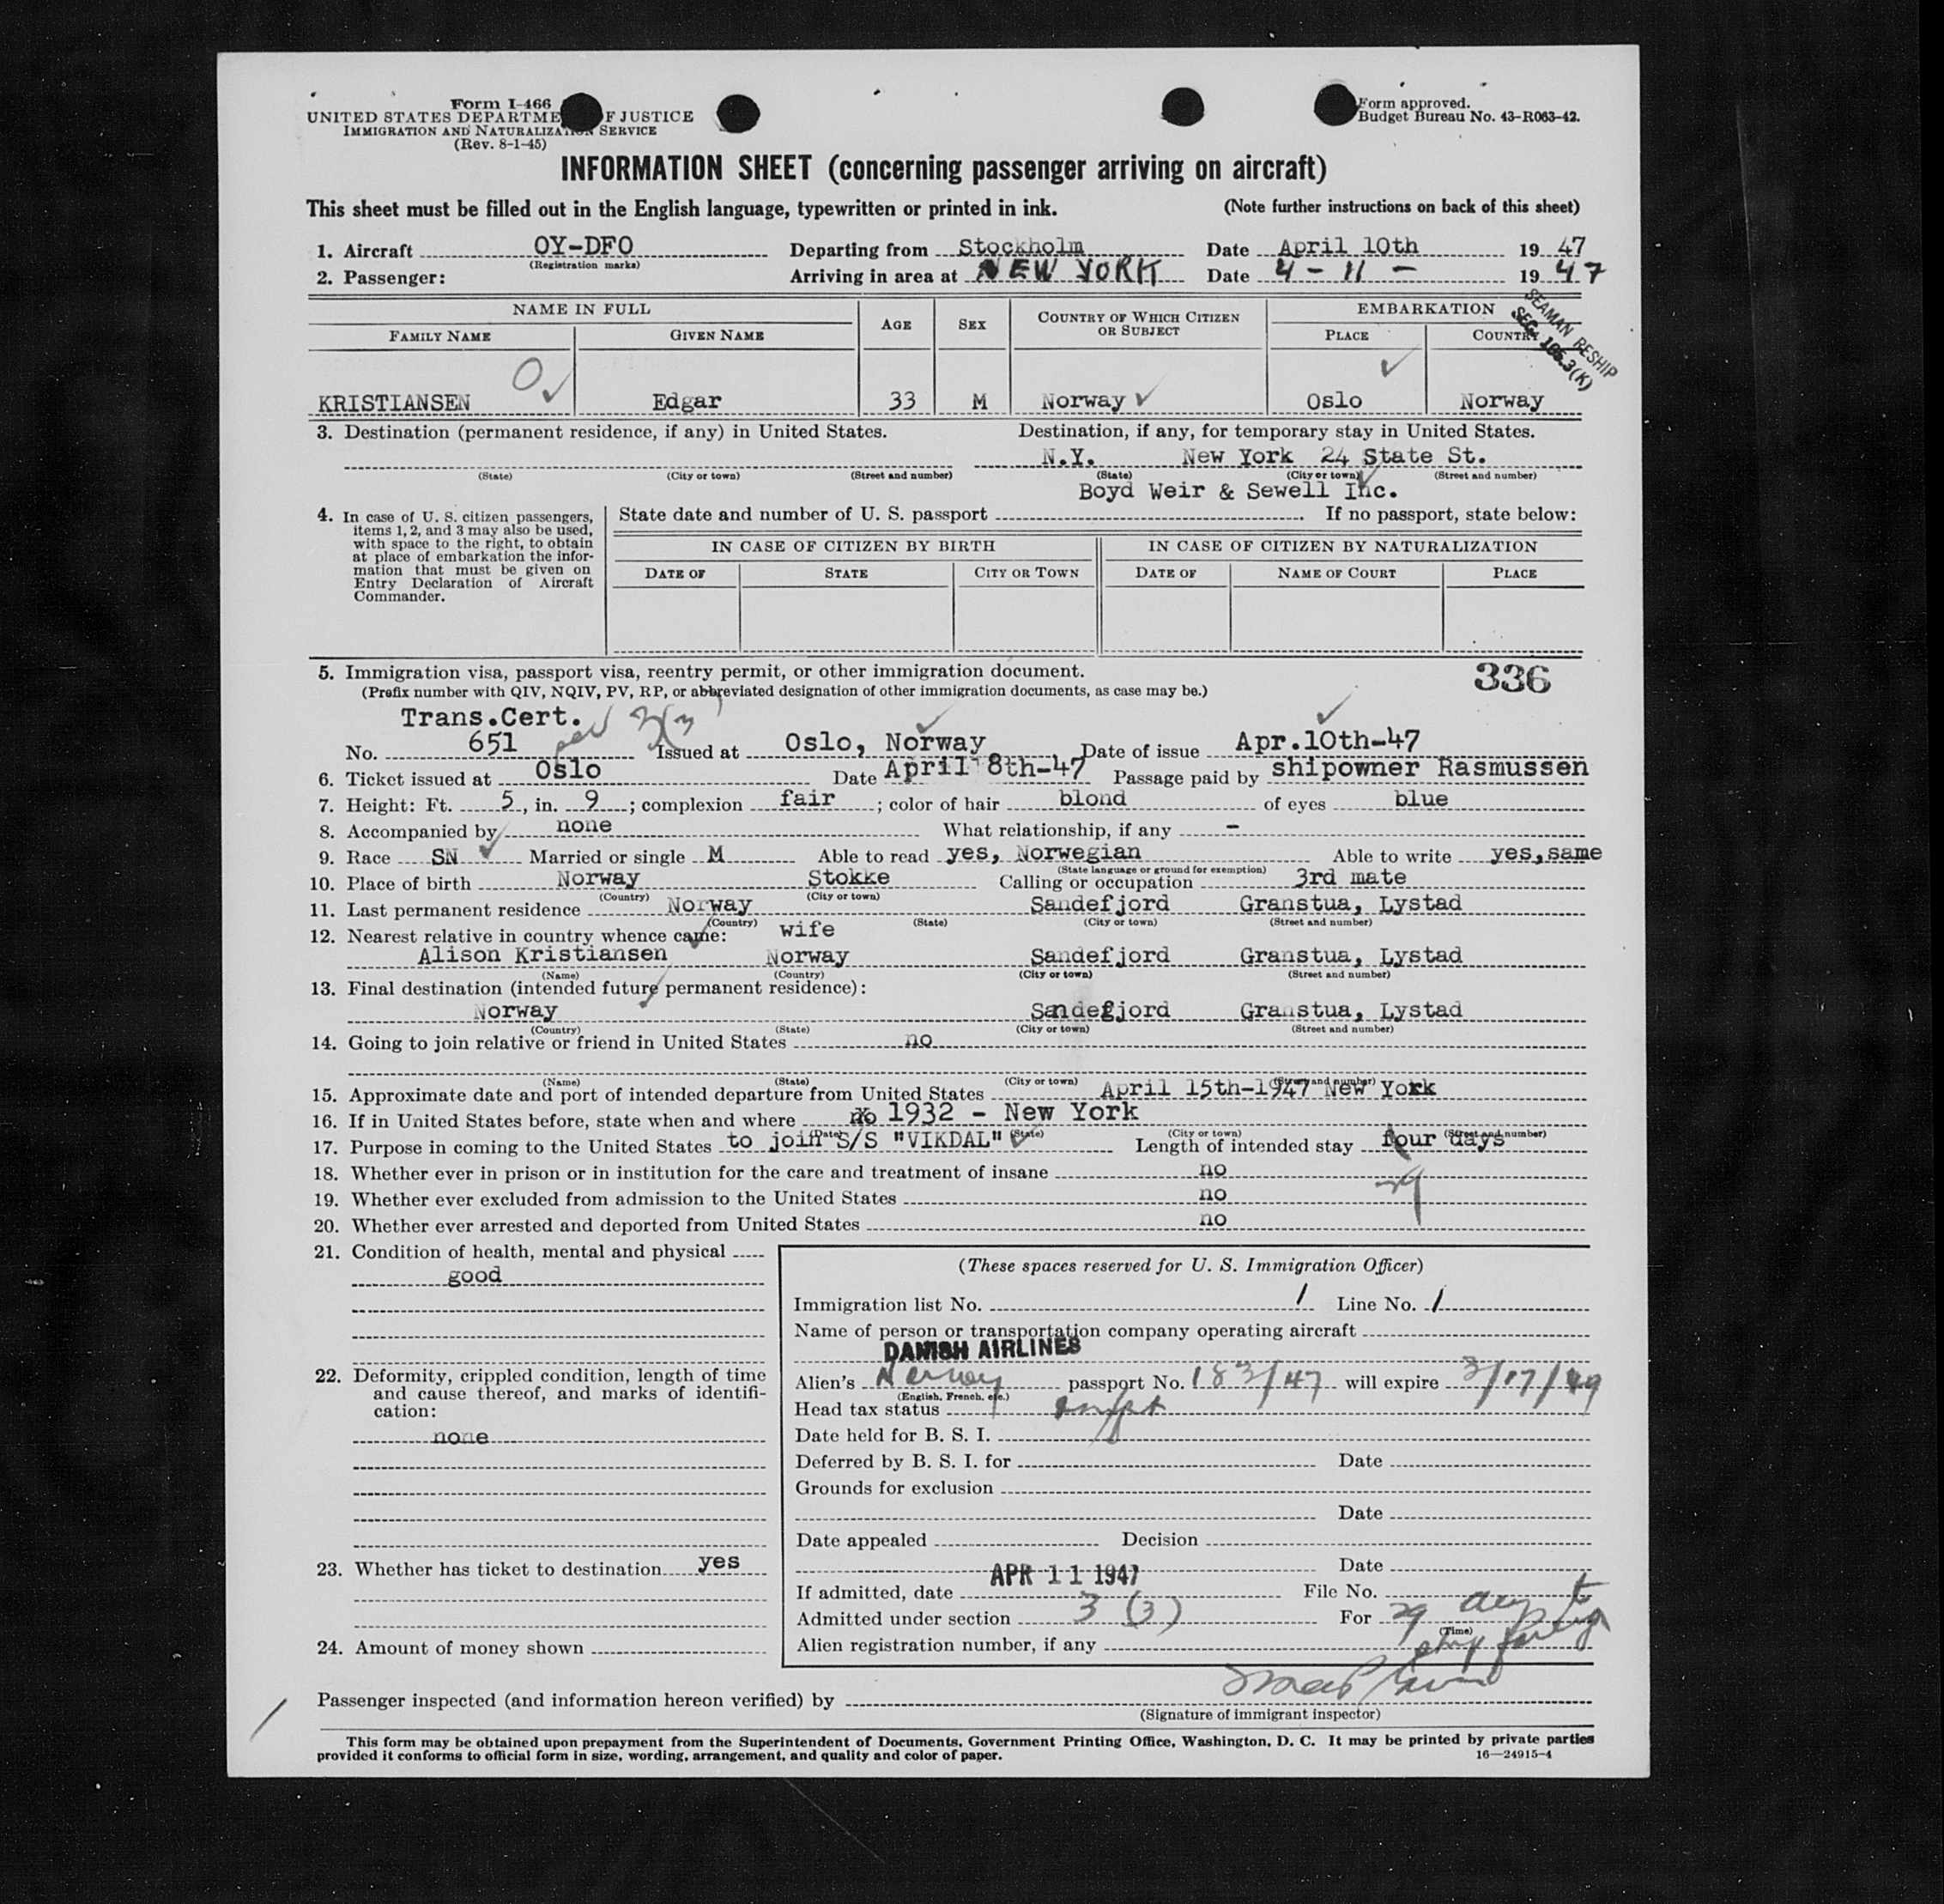 Form I-466
UNITED STATES DEPARTME F JUSTICE
IMMIGRATION AND NATURALIZATION SERVICE
(Rev. 8-1-45)
Form approved.
Budget Bureau No. 43-R063-42.
INFORMATION SHEET (concerning passenger arriving on aircraft)
This sheet must be filled out in the English language, typewritten or printed in ink. (Note further instructions on back of this sheet)
1. Aircraft OY-DFO Departing from Stockholm Date April 10th 19 47
(Registration marks)
2. Passenger: Arriving in area at NEW YORK Date 4-11- 19 47
SEAMAN RESHIP
SEC. 105.3(K)
NAME IN FULL AGE SEX COUNTRY OF WHICH CITIZEN OR SUBJECT EMBARKATION
FAMILY NAME GIVEN NAME PLACE COUNTRY
KRISTIANSEN Edgar 33 M Norway Oslo Norway
3. Destination (permanent residence, if any) in United States. Destination, if any, for temporary stay in United States.
N.Y. New York 24 State St.
(State) (City or town) (Street and number) (State) (City or town) (Street and number)
Boyd Weir & Sewell Inc.
4. In case of U. S. citizen passengers, items 1, 2, and 3 may also be used, with space to the right, to obtain at place of embarkation the information that must be given on Entry Declaration of Aircraft Commander.
State date and number of U. S. passport . If no passport, state below:
IN CASE OF CITIZEN BY BIRTH IN CASE OF CITIZEN BY NATURALIZATION
DATE OF STATE CITY OR TOWN DATE OF NAME OF COURT PLACE
5. Immigration visa, passport visa, reentry permit, or other immigration document. 336
(Prefix number with QIV, NQIV, PV, RP, or abbreviated designation of other immigration documents, as case may be.)
Trans.Cert. 3(3)
No. 651 Issued at Oslo, Norway Date of issue Apr.10th-47
6. Ticket issued at Oslo Date April 8th-47 Passage paid by shipowner Rasmussen
7. Height: Ft. 5, in. 9; complexion fair; color of hair blond of eyes blue
8. Accompanied by none What relationship, if any -
9. Race SN Married or single M Able to read yes, Norwegian Able to write yes,same
(State language or ground for exemption)
10. Place of birth Norway Stokke Calling or occupation 3rd mate
(Country) (City or town)
11. Last permanent residence Norway Sandefjord Granstua, Lystad
(Country) (State) (City or town) (Street and number)
12. Nearest relative in country whence came: wife
Alison Kristiansen Norway Sandefjord Granstua, Lystad
(Name) (Country) (City or town) (Street and number)
13. Final destination (intended future permanent residence):
Norway Sandefjord Granstua, Lystad
(Country) (State) (City or town) (Street and number)
14. Going to join relative or friend in United States no
(Name) (State) (City or town) (Street and number)
15. Approximate date and port of intended departure from United States April 15th-1947 New York
16. If in United States before, state when and where no 1932 - New York
(Date) (State) (City or town) (Street and number)
17. Purpose in coming to the United States to join S/S "VIKDAL" Length of intended stay four days
29
18. Whether ever in prison or in institution for the care and treatment of insane no
19. Whether ever excluded from admission to the United States no
20. Whether ever arrested and deported from United States no
21. Condition of health, mental and physical
good
22. Deformity, crippled condition, length of time and cause thereof, and marks of identification:
none
23. Whether has ticket to destination yes
24. Amount of money shown
(These spaces reserved for U. S. Immigration Officer)
Immigration list No. 1 Line No. 1
Name of person or transportation company operating aircraft
DANISH AIRLINES
Alien's Norway passport No. 183/47 will expire 3/17/49
(English, French, etc.)
Head tax status exmpt
Date held for B. S. I.
Deferred by B. S. I. for Date
Grounds for exclusion
Date
Date appealed Decision
Date
If admitted, date APR 11 1947 File No.
Admitted under section 3 (3) For 29 days t
(Time)
ship foreign
Alien registration number, if any
Passenger inspected (and information hereon verified) by
(Signature of immigrant inspector)
This form may be obtained upon prepayment from the Superintendent of Documents, Government Printing Office, Washington, D. C. It may be printed by private parties
provided it conforms to official form in size, wording, arrangement, and quality and color of paper. 16—24915-4